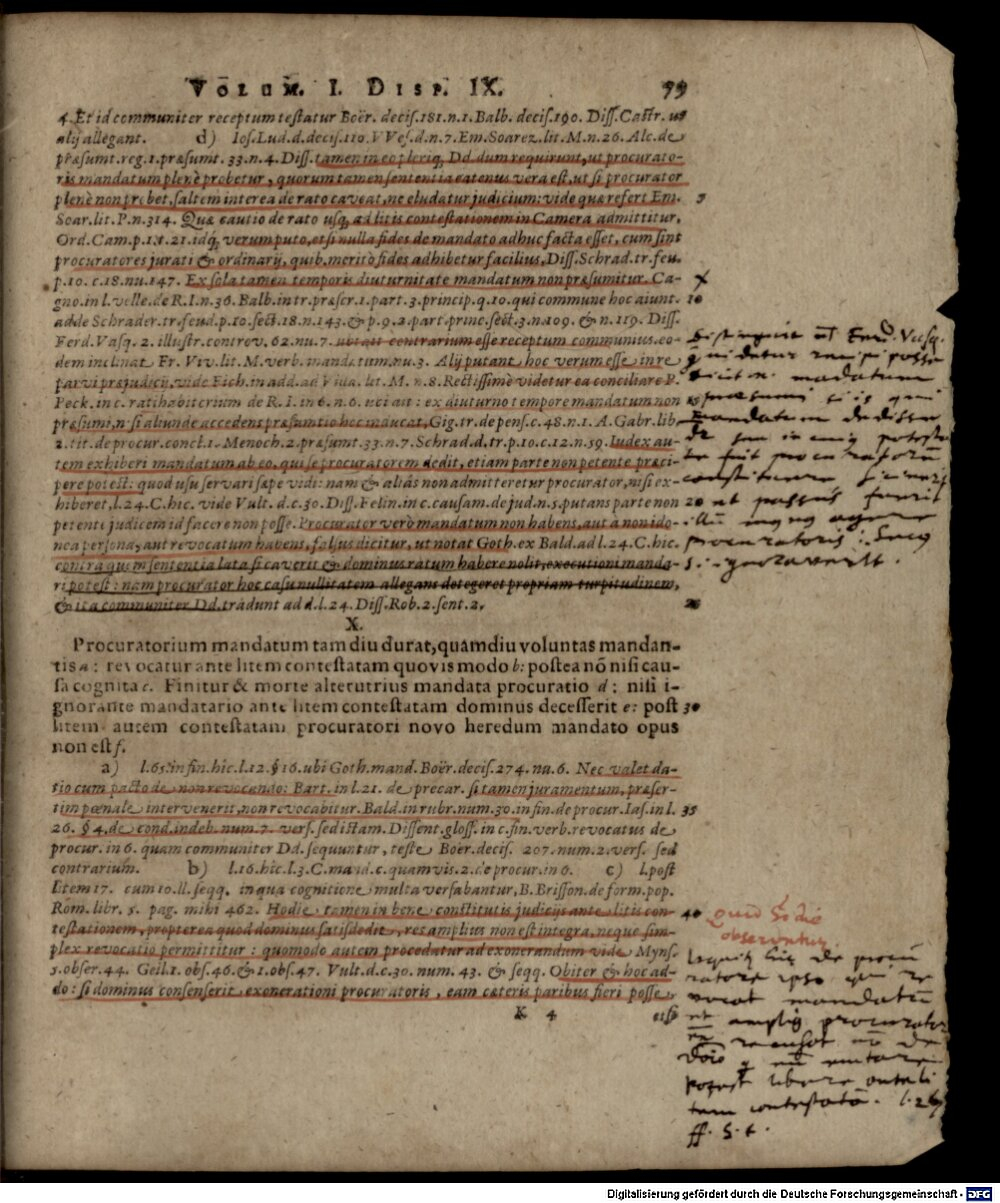 VOLUM. I. DISP. IX. 99
4. Et id communiter receptum testatur Boër. decis. 181. n. 1. Balb. decis. 190. Diss. Castr. ut
alij allegant. d) Ios. Lud. d. decis. 110. VVes. d. n. 7. Em. Soarez. lit. M. n. 26. Alc. de
præsumt. reg. 1. præsumt. 33. n. 4. Diss. tamen in eo pleriq; Dd. dum requirunt, ut procurato-
ris mandatum plenè probetur, quorum tamen sententia eatenus vera est, ut si procurator
plenè non probet, saltem interea de rato caveat, ne eludatur judicium: vide quæ refert Em. 5
Soar. lit. P. n. 314. Quæ cautio de rato usq; ad litis contestationem in Camera admittitur,
Ord. Cam. p. 1. t. 21. idq; verum puto, etsi nulla fides de mandato adhuc facta esset, cum sint
procuratores jurati & ordinarij, quib. meritò fides adhibetur facilius, Diss. Schrad. tr. feu.
p. 10. c. 18. nu. 147. Ex sola tamen temporis diuturnitate mandatum non præsumitur. Ca-
gno. in l. velle. de R. I. n. 36. Balb. in tr. præscr. 1. part. 3. princip. q. 10. qui commune hoc aiunt. 10
adde Schrader. tr. feud. p. 10. sect. 18. n. 143. & p. 9. 2. part. princ. sect. 3. n. 109. & n. 119. Diss.
Ferd. Vasq. 2. illustr. controv. 62. nu. 7. ubi ait contrarium esse receptum communius. eo-
dem inclinat Fr. Viv. lit. M. verb. mandatum. nu. 3. Alij putant hoc verum esse in re
parvi præjudicij, vide Eich. in add. ad Viuia. lit. M. n. 8. Rectissimè videtur ea conciliare P.
Peck. in c. ratihabitcrium de R. I. in 6. n. 6. uci ait: ex diuturno tempore mandatum non 15
præsumi, n. si aliunde accedens præsumtio hoc maucat, Gig. tr. de pens. c. 48. n. 1. A. Gabr. lib.
2. tit. de procur. concl. 1. Menoch. 2. præsumt. 33. n. 7. Schrad. d. tr. p. 10. c. 12. n. 59. Iudex au-
tem exhiberi mandatum ab eo, qui se procuratorem dedit, etiam parte non petente præci-
pere potest: quod usu servari sæpe vidi: nam & aliàs non admitteretur procurator, nisi ex-
hiberet, l. 24. C. hic. vide Vult. d. c. 30. Diss. Felin. in c. causam. de jud. n. 5. putans parte non 20
petente judicem id facere non posse. Procurator verò mandatum non habens, aut à non ido-
nea persona, aut revocatum habens, falsus dicitur, ut notat Goth. ex Bald. ad l. 24. C. hic.
contra quem sententia lata si caverit & dominus ratum habere nolit, executioni manda-
ri potest: nam procurator hoc casu nullitatem allegans detegeret propriam turpitudinem,
& ita communiter Dd. tradunt ad d. l. 24. Diss. Rob. 2. sent. 2.
X.
Procuratorium mandatum tam diu durat, quàm diu voluntas mandan-
tis a: revocatur ante litem contestatam quovis modo b: postea nō nisi cau-
sa cognita c. Finitur & morte alterutrius mandata procuratio d: nisi i-
gnorante mandatario ante litem contestatam dominus decesserit e: post 30
litem autem contestatam procuratori novo heredum mandato opus
non est f.
a) l. 65. in fin. hic. l. 12. § 16. ubi Goth. mand. Boër. decis. 274. nu. 6. Nec valet da-
tio cum pacto de non revocando: Bart. in l. 21. de precar. si tamen juramentum, præser-
tim pœnale intervenerit, non revocabitur. Bald. in rubr. num. 30. in fin. de procur. Ias. in l. 35
26. § 4. de cond. indeb. num. 7. vers. sed istam. Dissent. gloss. in c. fin. verb. revocatus de
procur. in 6. quam communiter Dd. sequuntur, teste Boër. decis. 207. num. 2. vers. sed
contrarium. b) l. 16. hic. l. 3. C. ma id. c. quamvis. 2. de procur. in 6. c) l. post
litem 17. cum 10. ll. seqq. in qua cognitione multa versabantur, B. Brisson. de form. pop.
Rom. libr. 5. pag. mihi 462. Hodie tamen in bene constitutis judicijs ante litis con- 40
testationem, propterea quod dominus satisdedit, res amplius non est integra, neque sim-
plex revocatio permittitur: quomodo autem procedatur ad exonerandum vide Myns.
5. obser. 44. Geil. 1. obs. 46. & 1. obs. 47. Vult. d. c. 30. num. 43. & seqq. Obiter & hoc ad-
do: si dominus consenserit exonerationi procuratoris, eam cæteris paribus fieri posse
K 4
mandatum
procuratoris
quid hodie
observatur
vocat mandatū
et amplig procurator